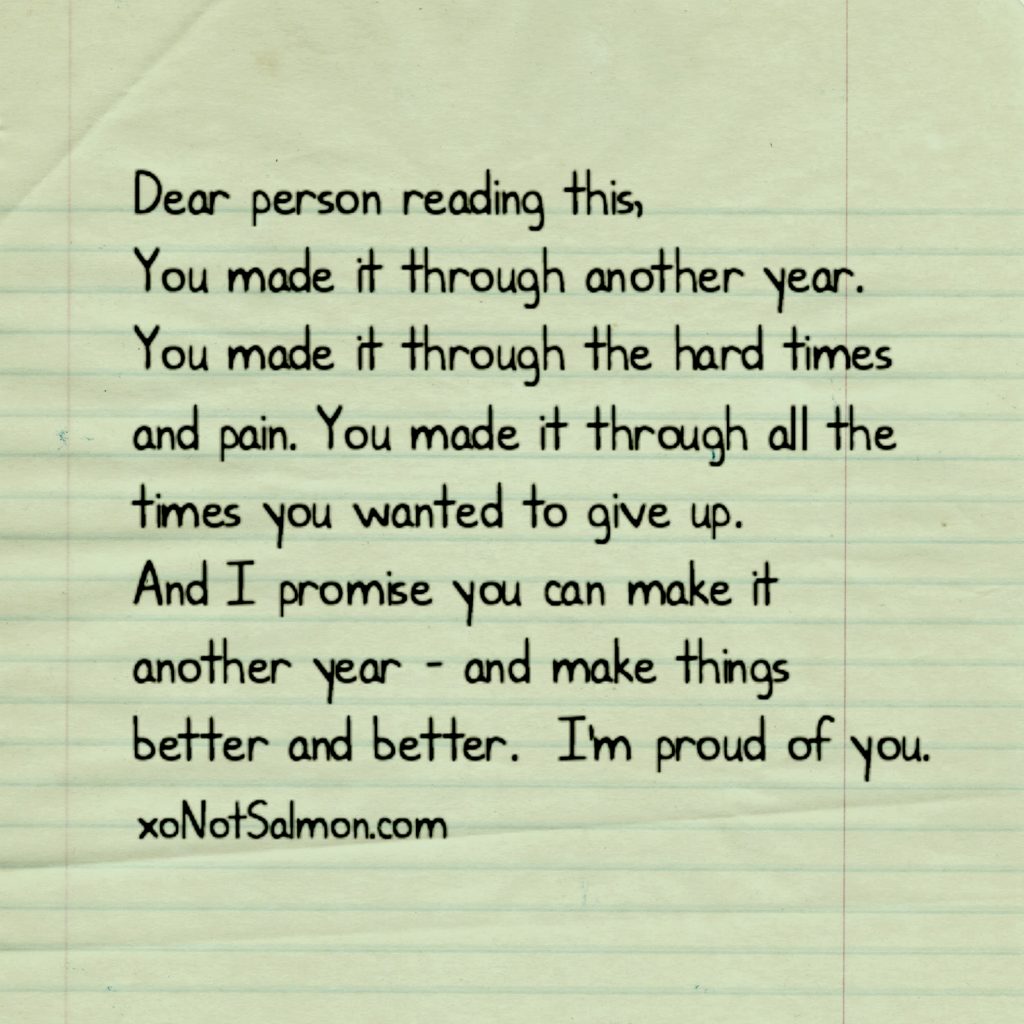 Dear person reading this,
You made it through another year.
You made it through the hard times
and pain. You made it through all the
times you wanted to give up.
And I promise you can make it
another year - and make things
better and better. I'm proud of you.
xoNotSalmon.com